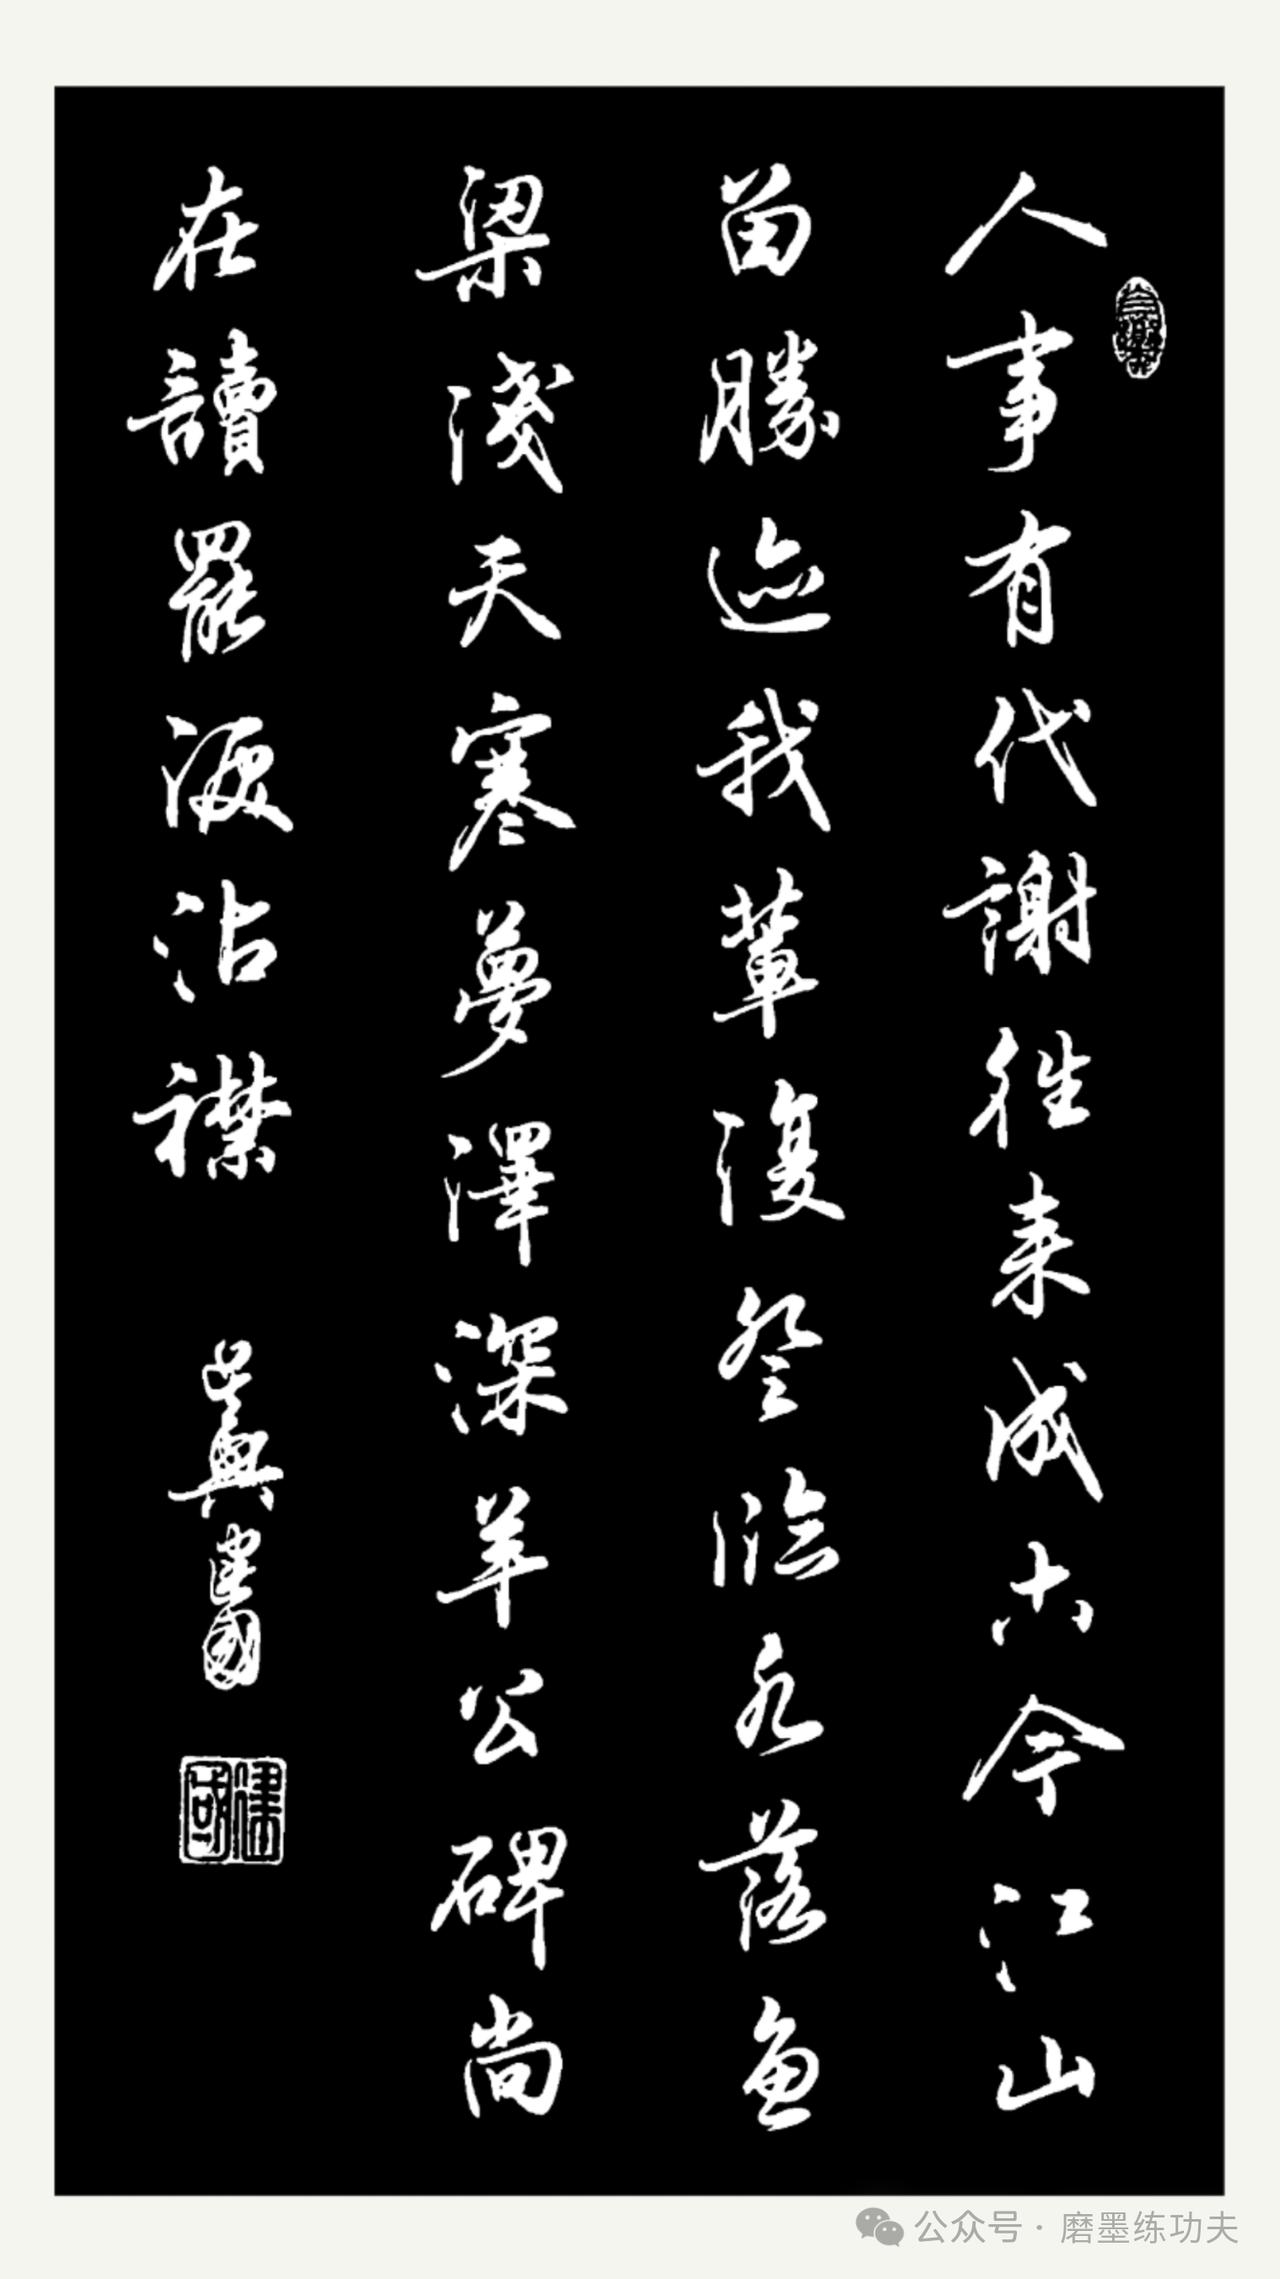 人事有代謝往来成古今江山
留勝迹我輩復登臨水落魚
梁淺天寒夢澤深羊公碑尚
在讀罷淚沾襟
吴興建國
建國
公众号·磨墨练功夫